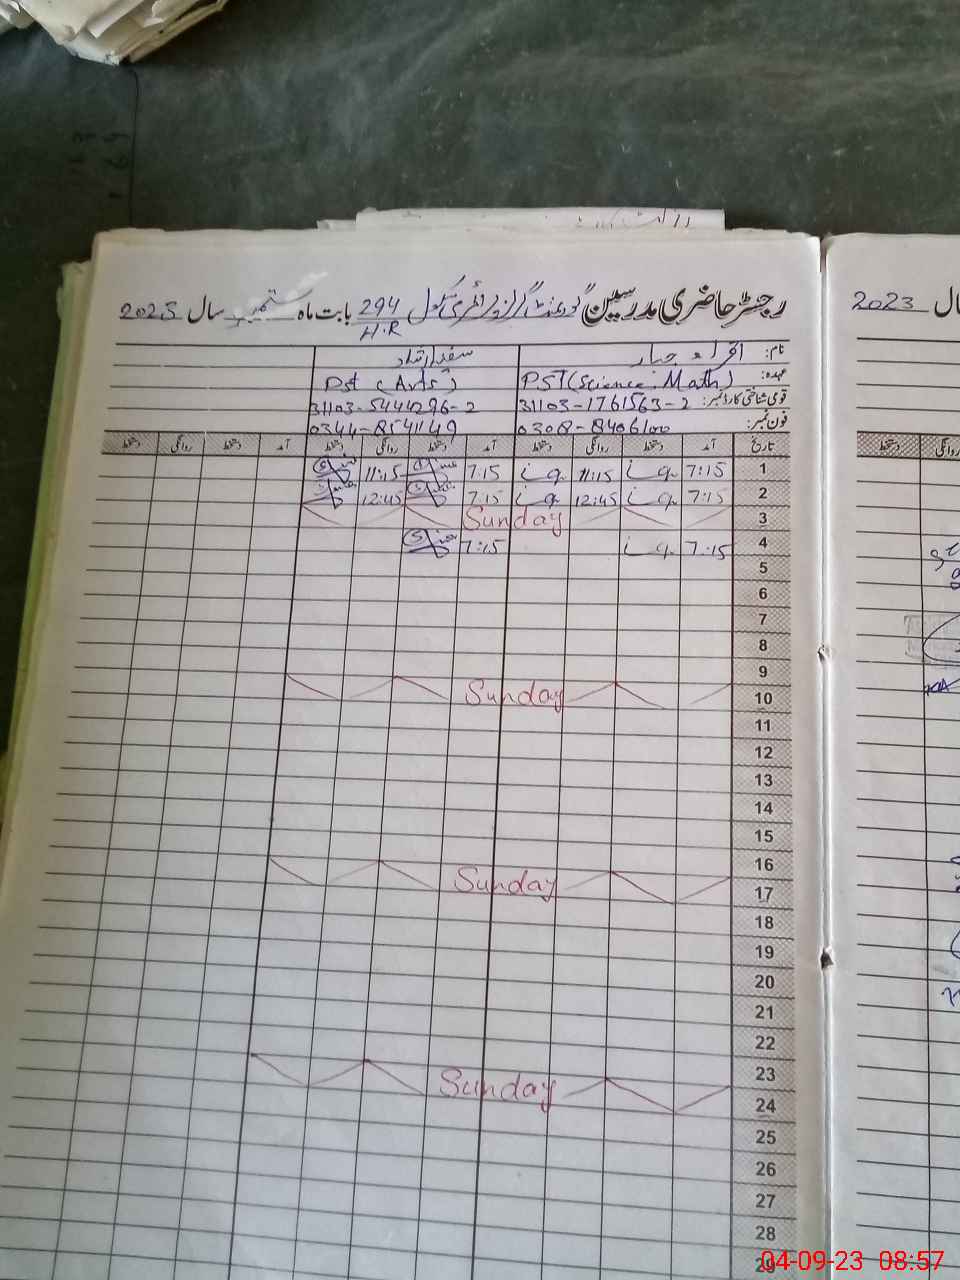 رجسٹر حاضری مدرسین گورنمنٹ گرلز پرائمری سکول 294/H.R بابت ماہ ستمبر سال 2023
نام: اقراء جبار
عہدہ: PST (Science. Math) Pst (Arts)
قومی شناختی کارڈ نمبر: 31103-1761563-2 31103-5444296-2
فون نمبر: 0308-8406100 0344-8541149
تاریخ آمد دستخط روانگی دستخط آمد دستخط روانگی دستخط آمد دستخط روانگی دستخط
1 7:15 11:15 7:15 11:15
2 7:15 12:45 7:15 12:45
3 Sunday
4 7:15 7:15
5
6
7
8
9
10 Sunday
11
12
13
14
15
16
17 Sunday
18
19
20
21
22
23
24 Sunday
25
26
27
28
29
سال 2023
روانگی دستخط
04-09-23 08:57